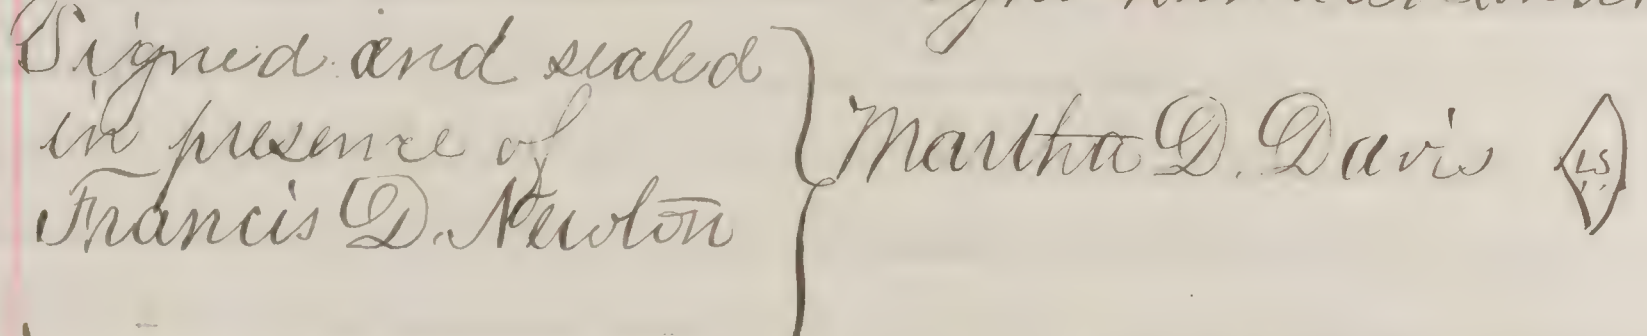 Signed and sealed
in presence of
Francis D. Newton
Martha D. Davis LS